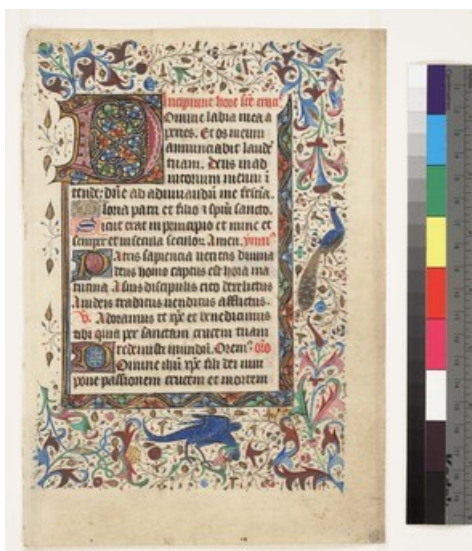 Incipiunt hore sce crucis
Domine labia mea a
peries. Et os meum
annunciabit laude
tuam. Deus in ad
iutorium meum i
tende: dne ad adiuuandu me festia.
Gloria patri et filio ⁊ spiu sancto.
Sicut erat in principio et nunc et
semper et in secula seculor. Amen. ymn
Patris sapiencia ueritas diuina
deus homo captus est hora ma
tutina A suis discipulis cito derelictus
A iudeis traditus uenditus afflictus.
V. Adoramus te xpe et benedicimus
tibi quia per sanctam crucem tuam
redemisti mundu. Orem. oro
Domine ihu xpe fili dei uiui
pone passionem crucem et mortem